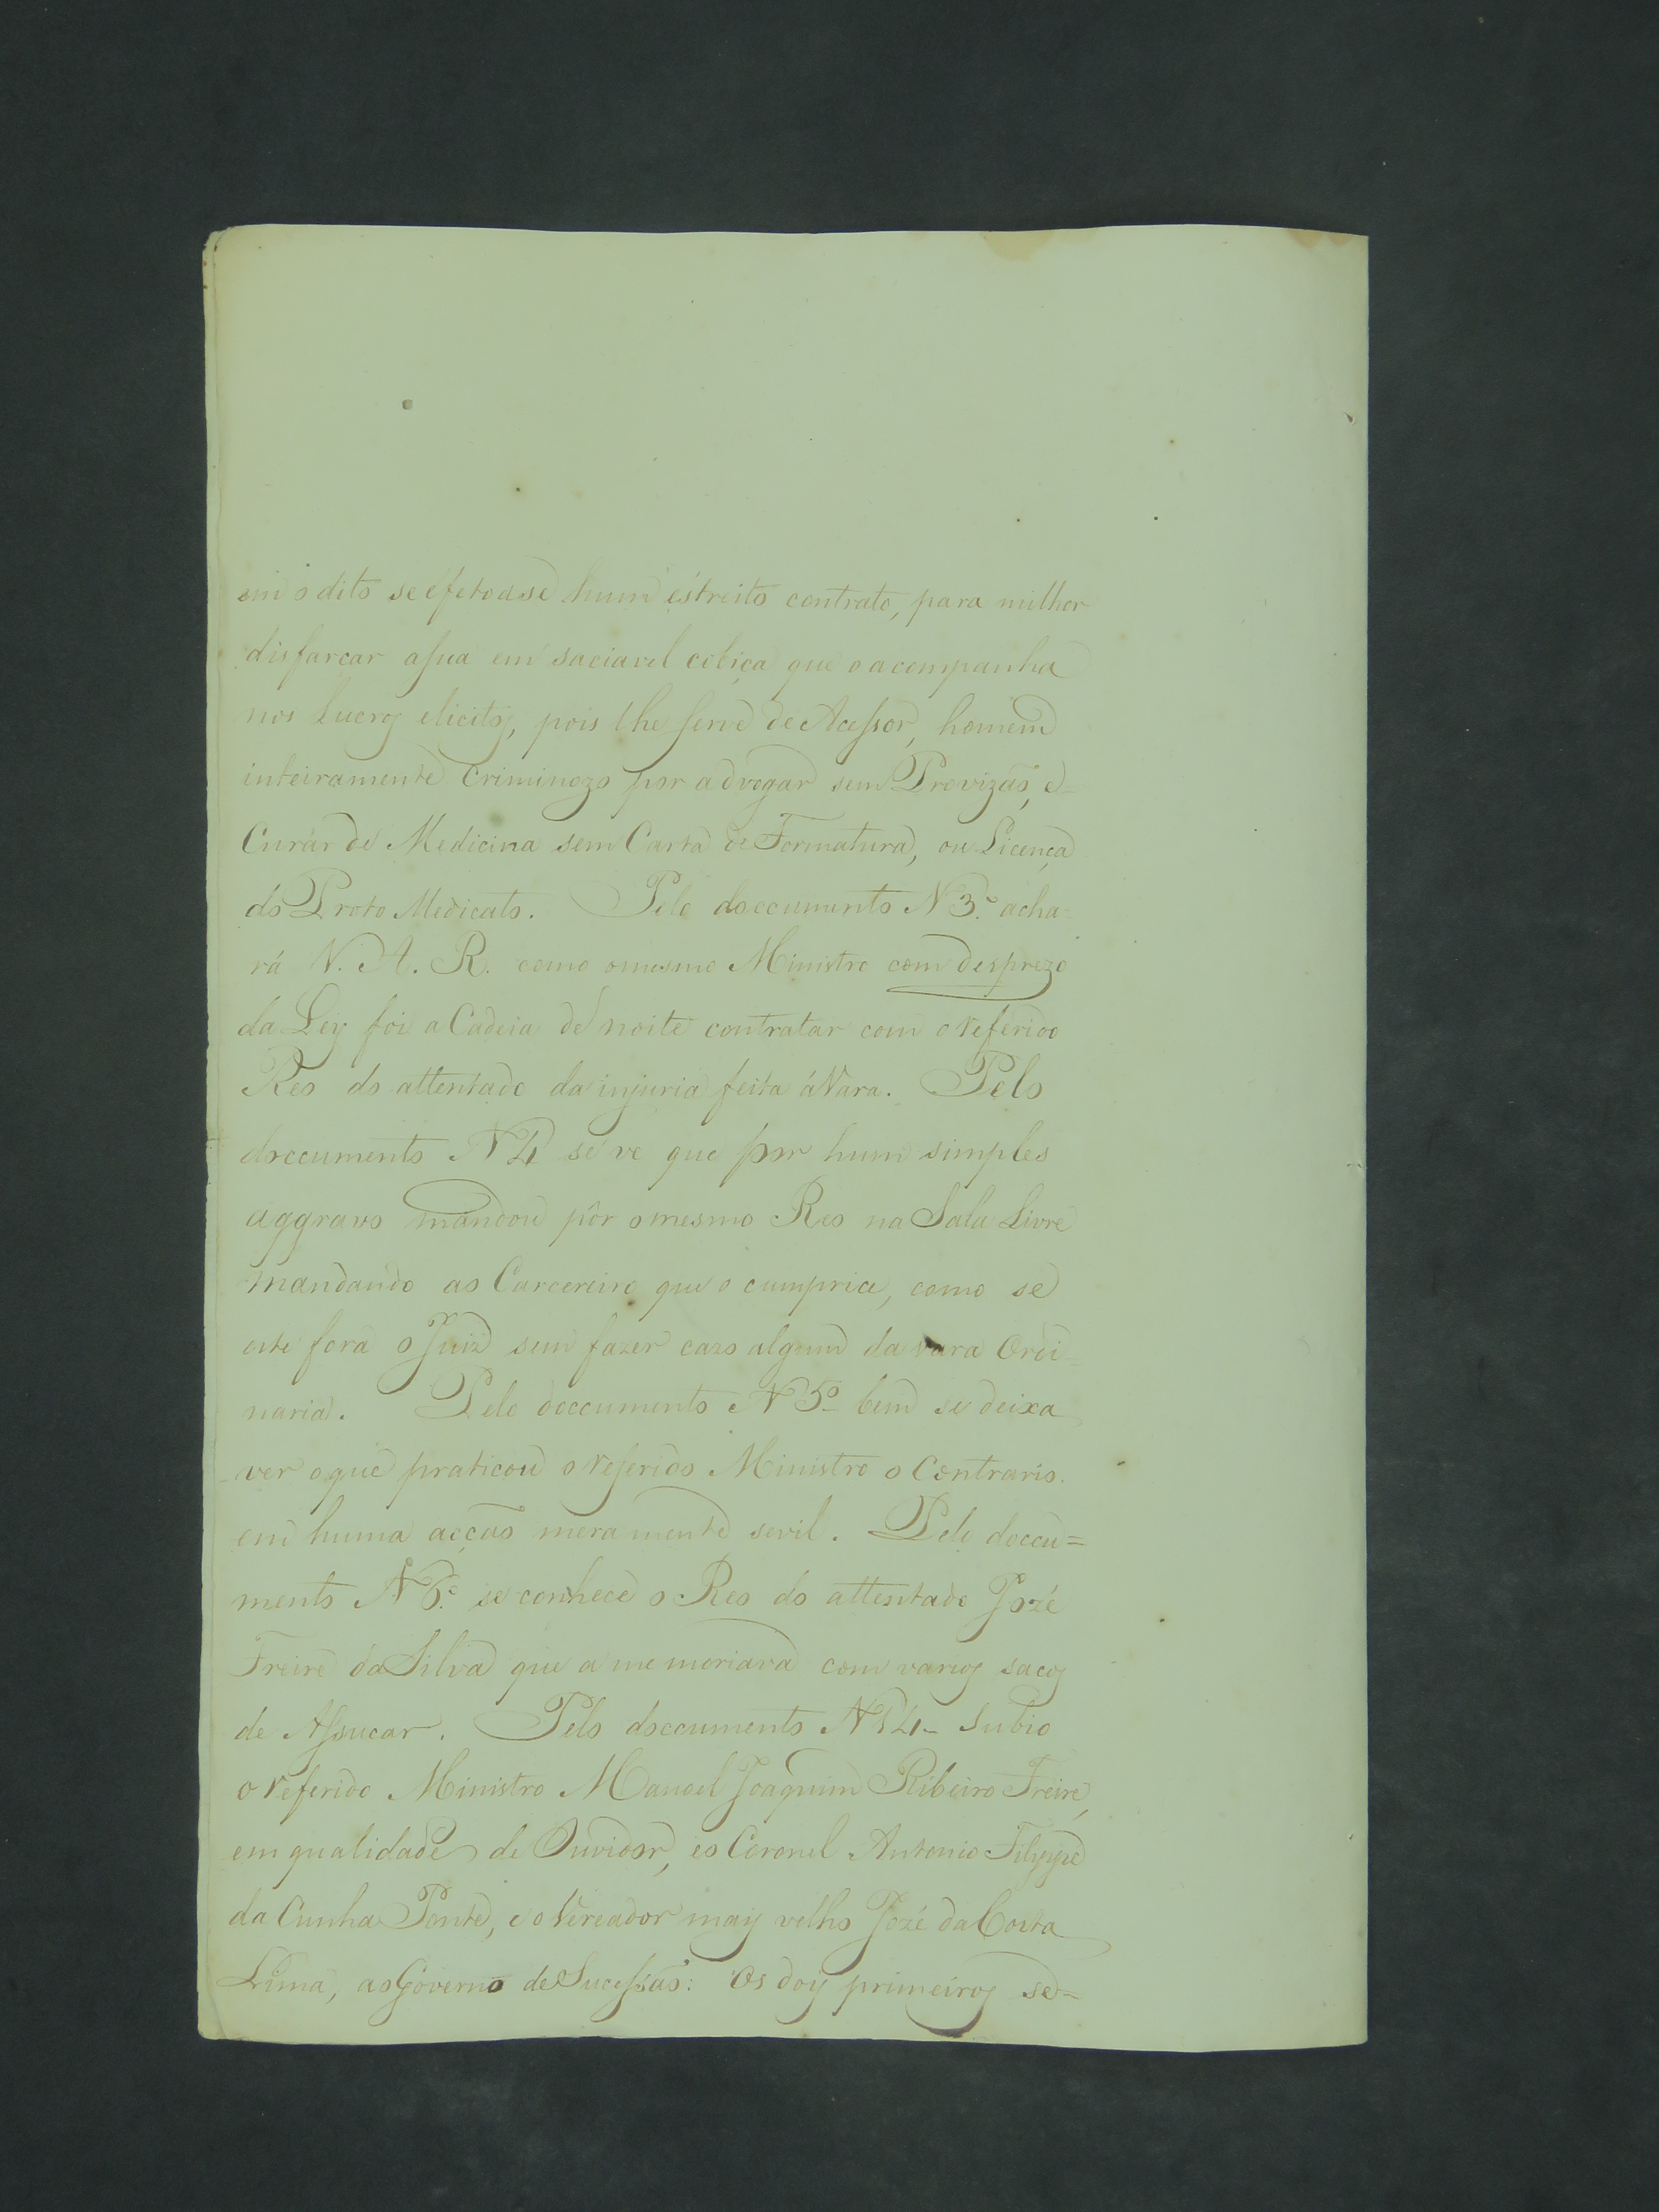 em o dito se efetoase hum estreito contrato, para milhor
disfarçar asua em saciavel cobiça que o acompanha
nos Lucros elicitos, pois lhe serve de Acessor, homem
inteiramente Criminozo por advogar sem Provizaõ, e=
Curár de Medicina sem Carta de Formatura, ou Licença
do Proto Medicato. Pelo doccumento N 3.º acha-
rá V. A. R. como omesmo Ministro com desprezo
da Ley foi a Cadeia de noite contratar com o referido
Reo do attentado da injuria feita áVara. Pelo
doccumento N 4 se ve que por hum simples
aggravo mandou pôr omesmo Reo na Sala Livre
mandando ao Carcereiro que o cumprice, como se
este fora o Juiz sem fazer cazo algum da vara Ordi=
naria. Pelo doccumento N 5º bem se deixa
ver oque praticou o referido Ministro o Contrario.
em huma acçaõ mera mente sevil. Pelo doccu=
mento N 6.º se conhece o Reo do attentado Jozé
Freire da Silva que a me moriava com varios sacos
de Assucar. Pelo doccumento N 14- Subio
o referido Ministro Manoel Joaquim Ribeiro Freire,
em qualidade de Ouvidor, eo Coronel Antonio Filippe
da Cunha Ponte, eo Vereador mais velho Jozé da Costa
Lima, ao Governo de Sucessaõ: Os dois primeiros se=